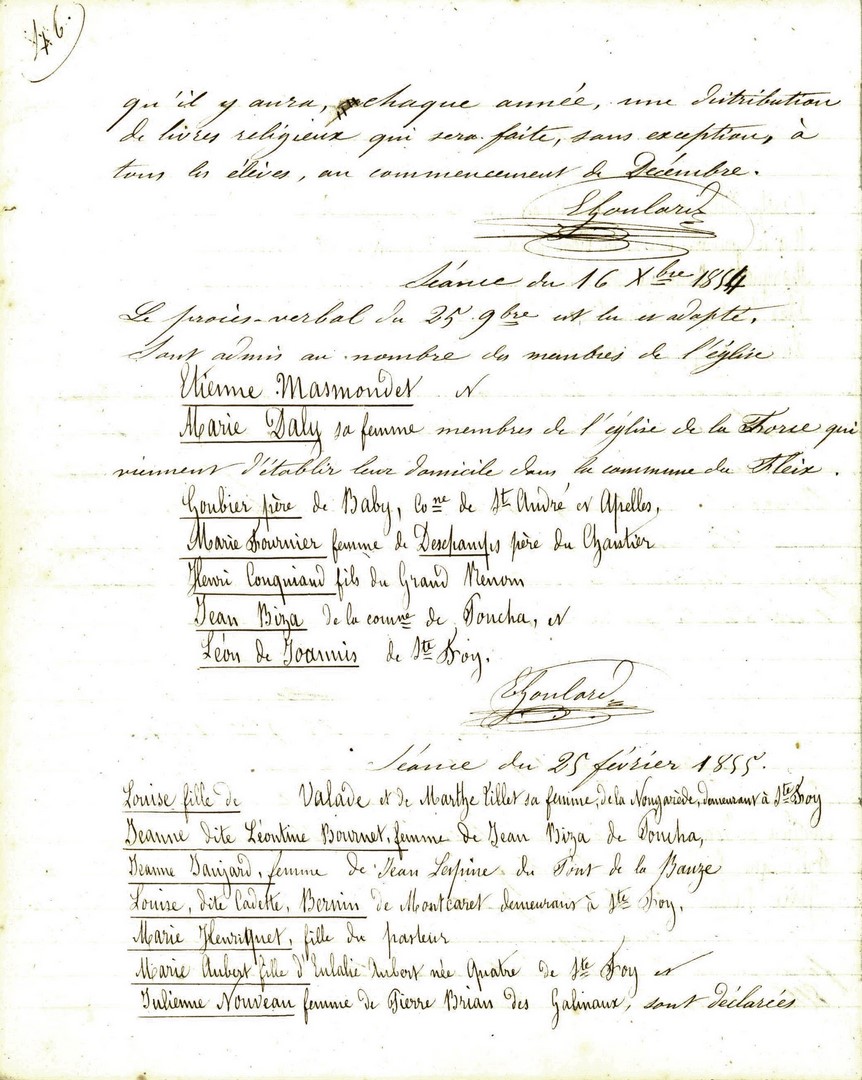 46.
qu'il y aura, chaque année, une distribution
de livres religieux qui sera faite, sans exception, à
tous les élèves, au commencement de Décembre.
EGoulard
Séance du 16 Xbre 1854
Le procès-verbal du 25 9bre est lu et adopté.
Sont admis au nombre des membres de l'église
Etienne Masmondet et
Marie Daly sa femme membres de l'église de la Force qui
viennent d'établir leur domicile dans la commune du Fleix.
Goubier père de Baby, Cone de St André et Apelles,
Marie Fournier femme de Deschamps père du Chantier
Henri Conquiaud fils du Grand Renom
Jean Biza de la comne de Poncha, et
Léon de Joannis de Ste Foy.
EGoulard
Séance du 25 février 1855.
Louise fille de Valade et de Marthe Tillet sa femme, de la Nougarède, demeurant à Ste Foy
Jeanne dite Léontine Bournet, femme de Jean Biza de Poncha,
Jeanne Jaujard, femme de Jean Lespine du Pont de la Bauze
Louise, dite Cadette, Bernin de Montcaret demeurant à Ste Foy,
Marie Henriquet, fille du pasteur
Marie Aubert fille d'Eulalie Aubert née Quatre de Ste Foy et
Julienne Nouveau femme de Pierre Brian des Galinaux, sont déclarées